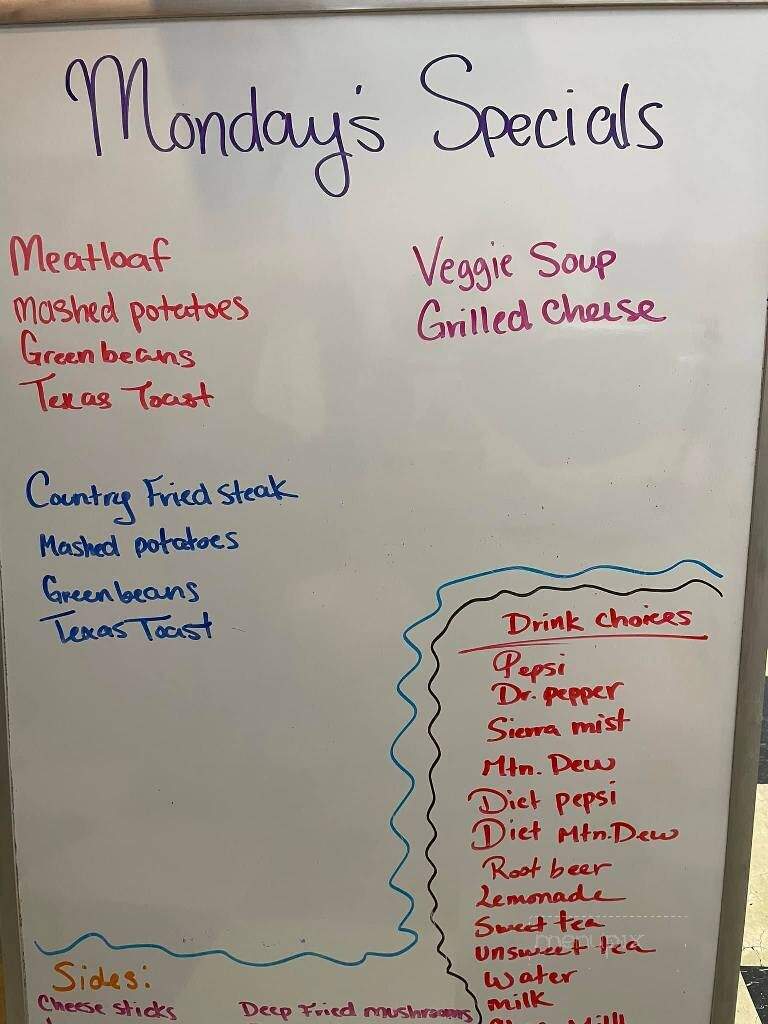 Monday's Specials
Meatloaf
Mashed potatoes
Green beans
Texas Toast
Veggie Soup
Grilled Cheese
Country Fried Steak
Mashed potatoes
Green beans
Texas Toast
Drink Choices
Pepsi
Dr. pepper
Sierra mist
Mtn. Dew
Diet pepsi
Diet Mtn. Dew
Root beer
Lemonade
Sweet tea
unsweet tea
Water
milk
Sides:
Cheese sticks
Deep Fried mushrooms
menupix